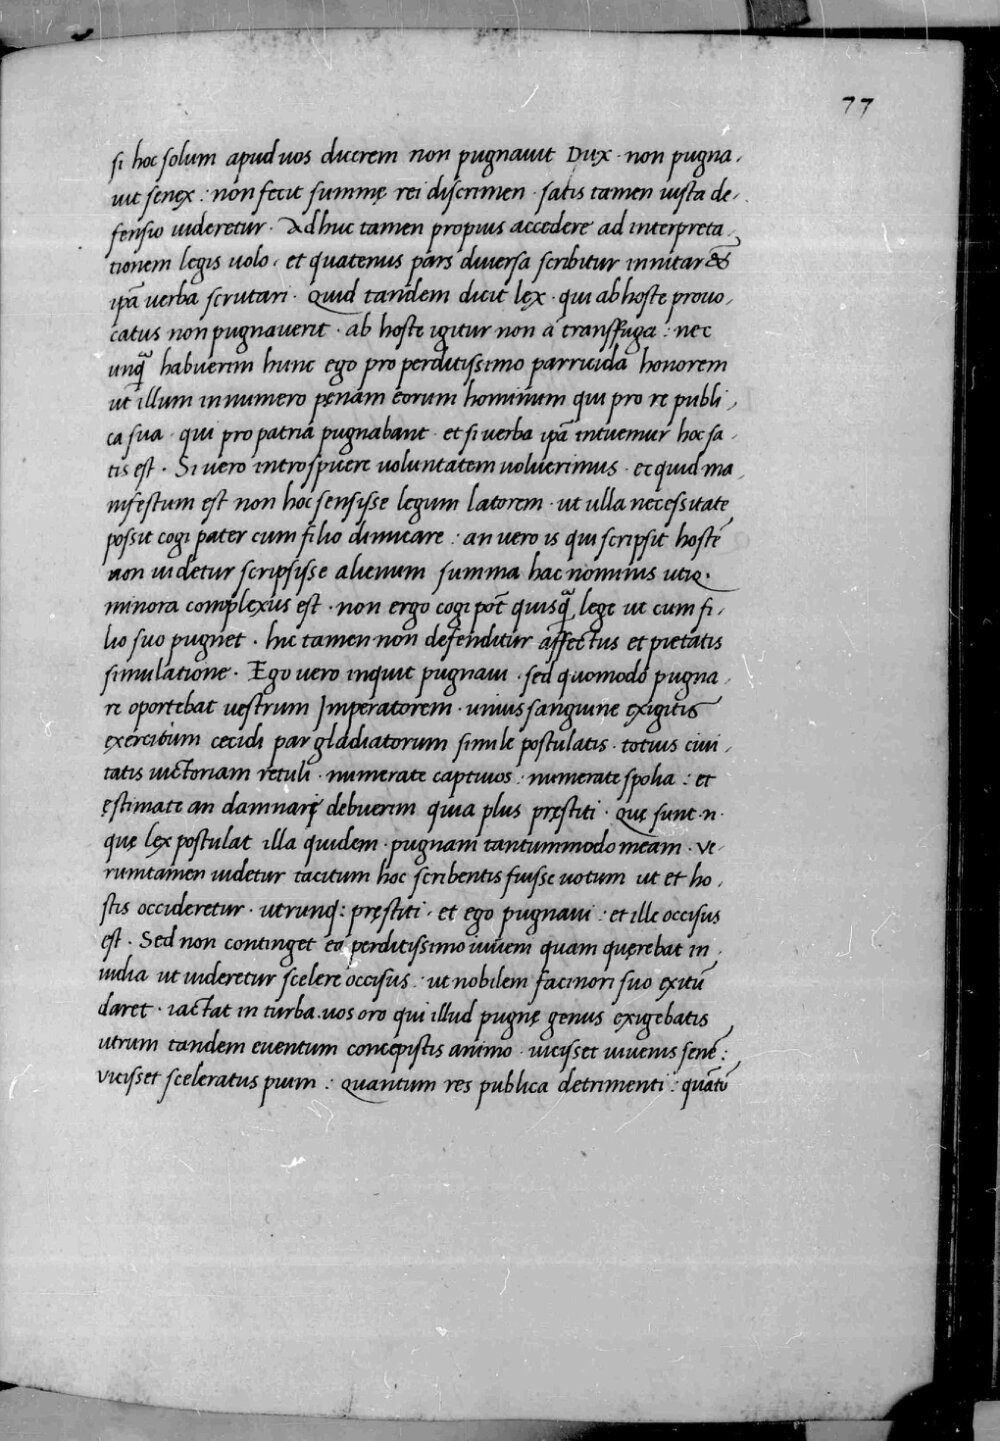 77
si hoc solum apud uos dicerem non pugnauit Dux · non pugna,
uit senex : non fecit summę rei discrimen · satis tamen iusta de,
fensio uideretur · Adhuc tamen propius accedere ad interpreta,
tionem legis uolo · et quatenus pars diuersa scribitur innitar &
ipā uerba scrutari · Quid tandem dicit lex · qui ab hoste prouo,
catus non pugnauerit · ab hoste igitur non a transffuga : nec
unq̄ habuerim hunc ego pro perditissimo parricida honorem
ut illum in numero pęnam eorum hominum qui pro re publi,
ca sua · qui pro patria pugnabant · et si uerba ipā intuemur hoc sa,
tis est · Si uero introspicere uoluntatem uoluerimus · ecquid ma,
nifestum est non hoc sensisse legum latorem · ut ulla necessitate
possit cogi pater cum filio dimicare : an uero is qui scripsit hostē
non uidetur scripsisse alienum summa hac nominis utiq.
minora complexus est · non ergo cogi pōt quisq̄ lege ut cum fi,
lio suo pugnet · hic tamen non defenditur affectus et pietatis
simulatione · Ego uero inquit pugnaui · sed quomodo pugna,
re oportebat uestrum Imperatorem · unius sanguine exigitis
exercitum cecidi par gladiatorum simile postulatis · totius ciui,
tatis uictoriam retuli · numerate captiuos : numerate spolia : et
ęstimate an damnari debuerim quia plus pręstiti · Quę sunt · n ·
quę lex postulat illa quidem · pugnam tantummodo meam · Ve,
rumtamen uidetur tacitum hoc scribentis fuisse uotum ut et ho,
stis occideretur · utrunq: pręstiti · et ego pugnaui : et ille occisus
est · Sed non continget eo perditissimo iuueni quam quęrebat in,
uidia ut uideretur scelere occisus : ut nobilem facinori suo exitū
daret · iactat in turba uos oro qui illud pugnę genus exigebatis
utrum tandem euentum concepistis animo · uicisset iuuenis senē :
Vicisset sceleratus pium : Quantum res publica detrimenti : quātū